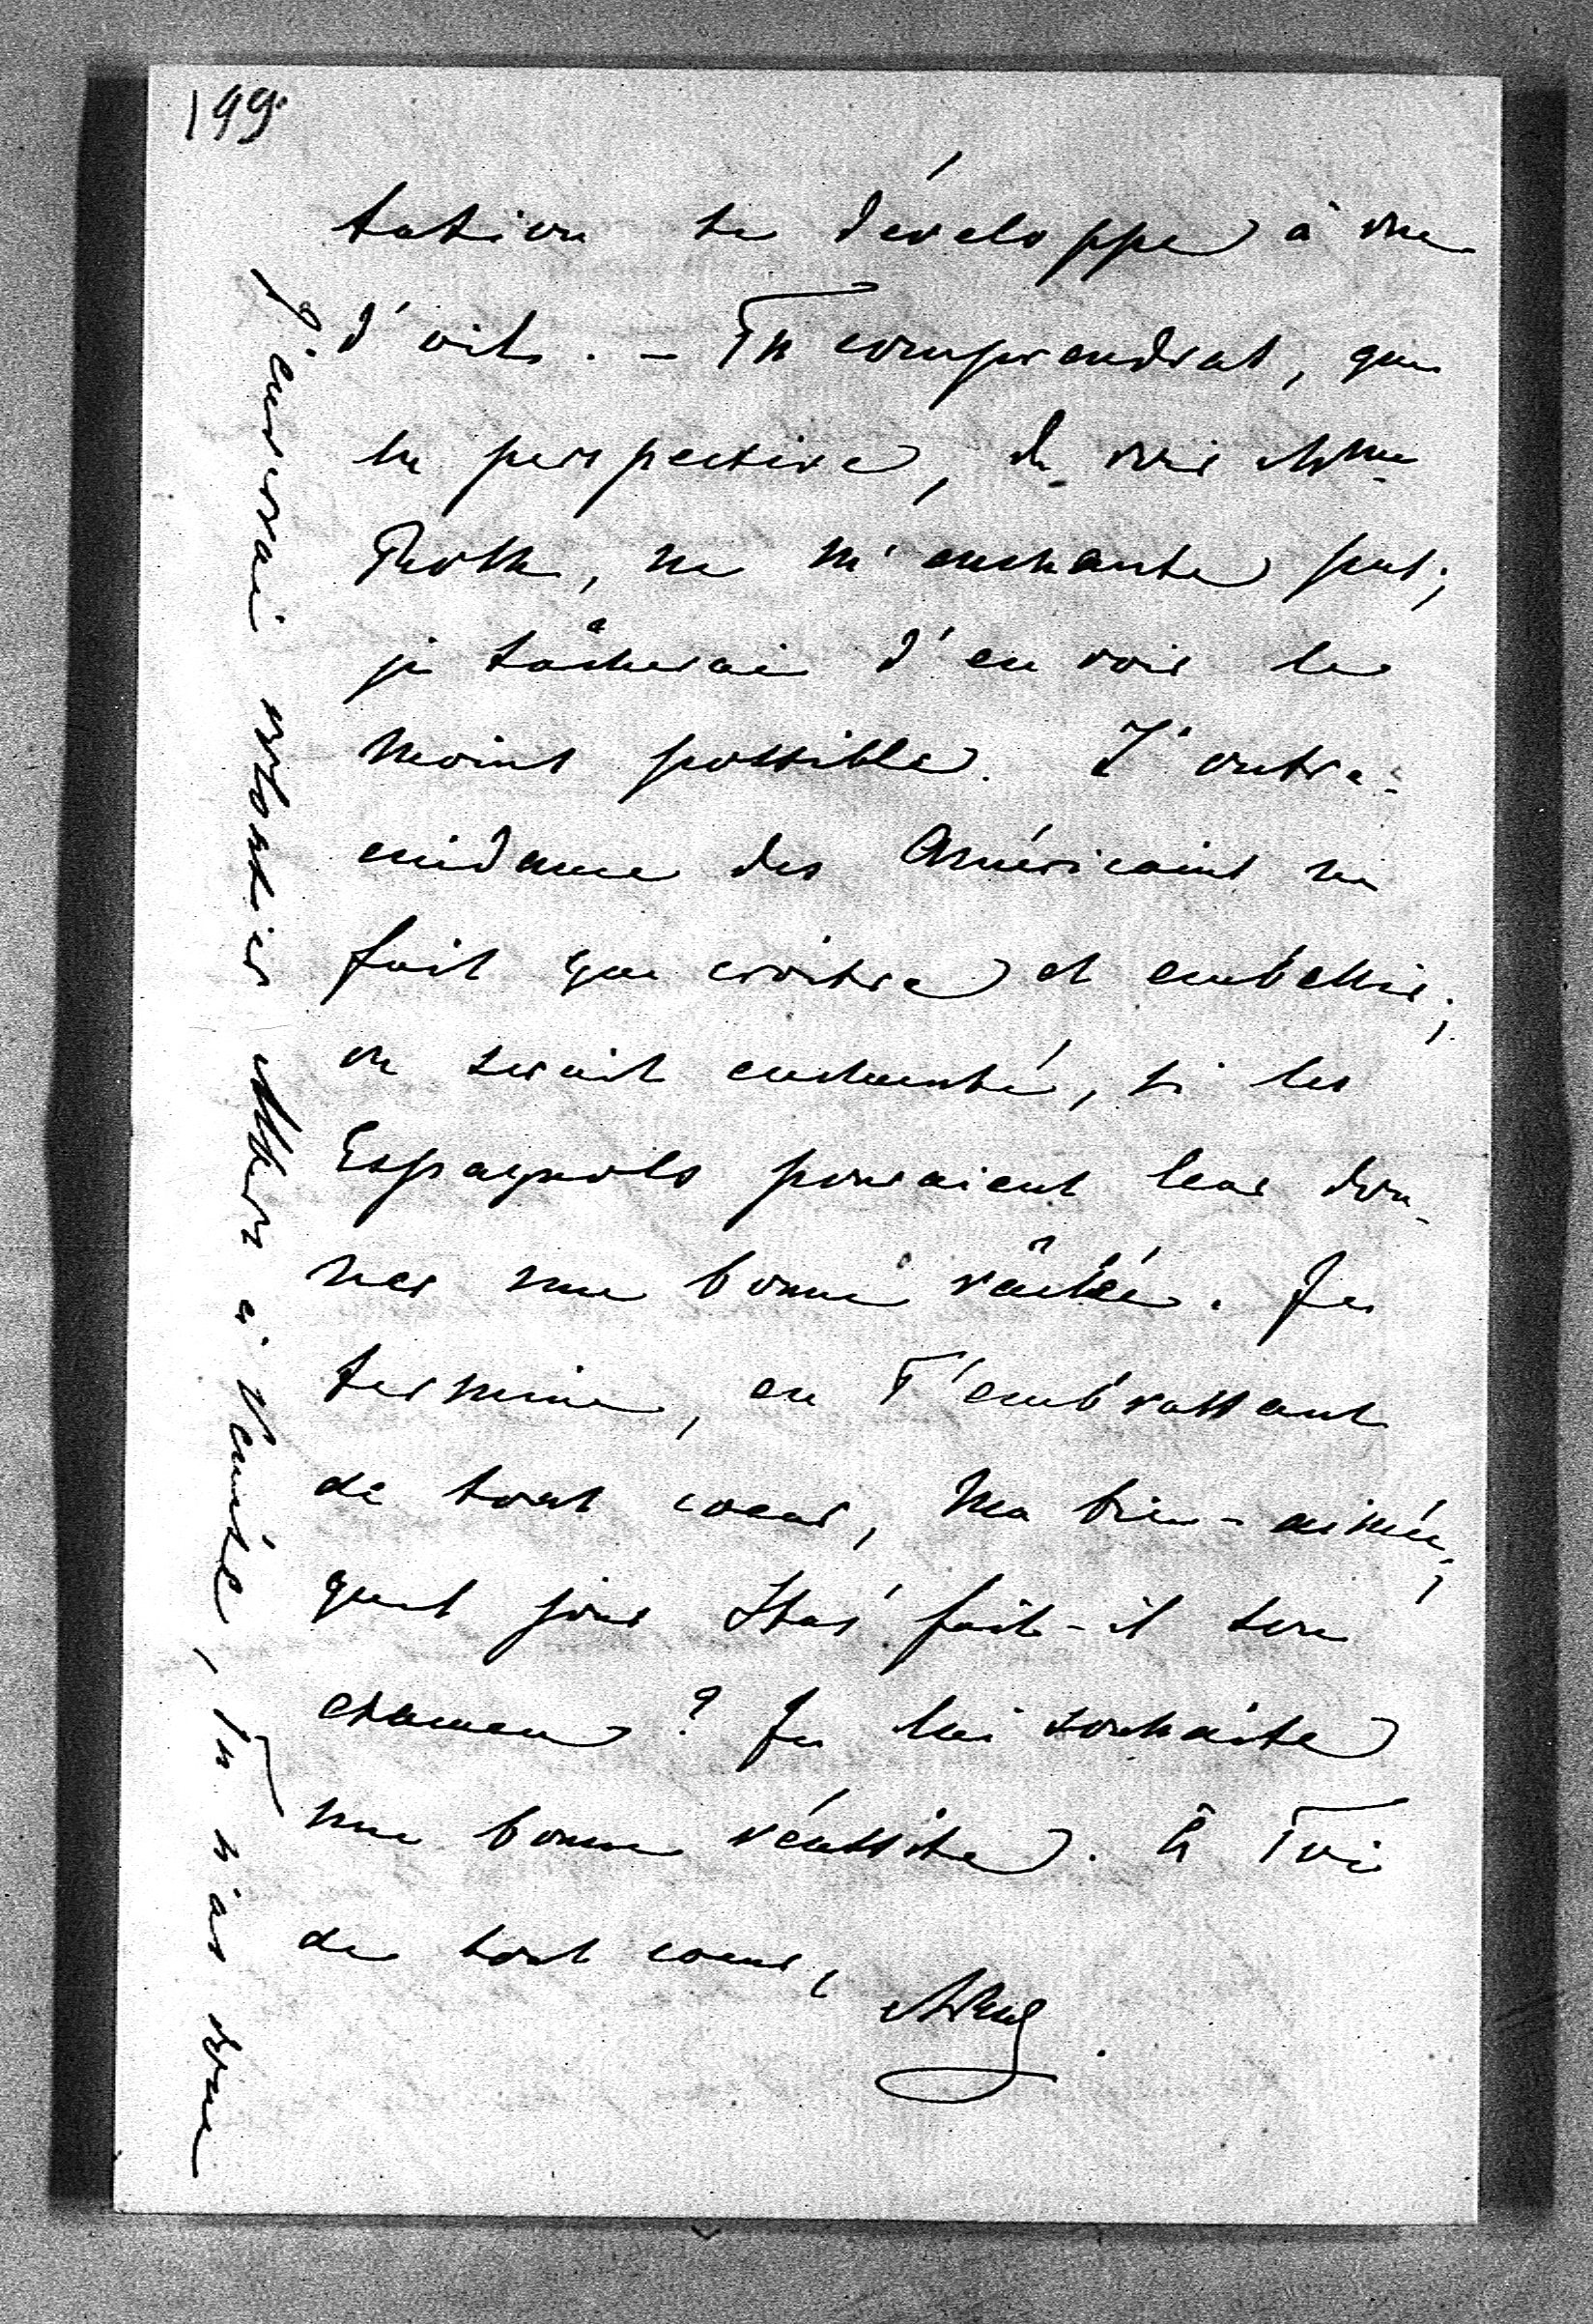 199.
tation se développe à vue
d'oeil. – Tu comprendras, que
la perspective, de voir Mme
Roth, ne m'enchante pas;
je tâcherai d'en voir le
moins possible. L'outre-
cuidance des Américains ne
fait que croître et embellir;
on serait enchanté, si les
Espagnols pouvaient leur don-
ner une bonne râclée. Je
termine, en T'embrassant
de tout coeur, ma bien-aimée;
quel jour Stas' fait-il son
examen? Je lui souhaite
une bonne réussite. à Toi
de tout coeur,
J'enverrai volontiers à Venise, Tu n'as